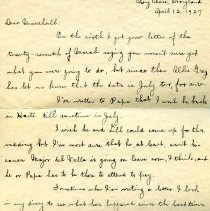 Chevy Chase, Maryland
April 12, 1927
Dear Marshall:
On the sixth I got your letter of the
twenty-ninth of March saying you weren't sure yet
what you were going to do, but since then Allie Gray
has let us know that the date is July for sure.
I've written to Papa that I will be back
in Haiti till sometime in July.
I wish he and Lill could come up for the
wedding but I'm most sure that he at least, can't be-
cause Major del Valle is going on leave now, I think, and
he or Papa has to be there to attend to
Sometimes when I'm writing a letter I look
in my diary to see what has happened since the last time